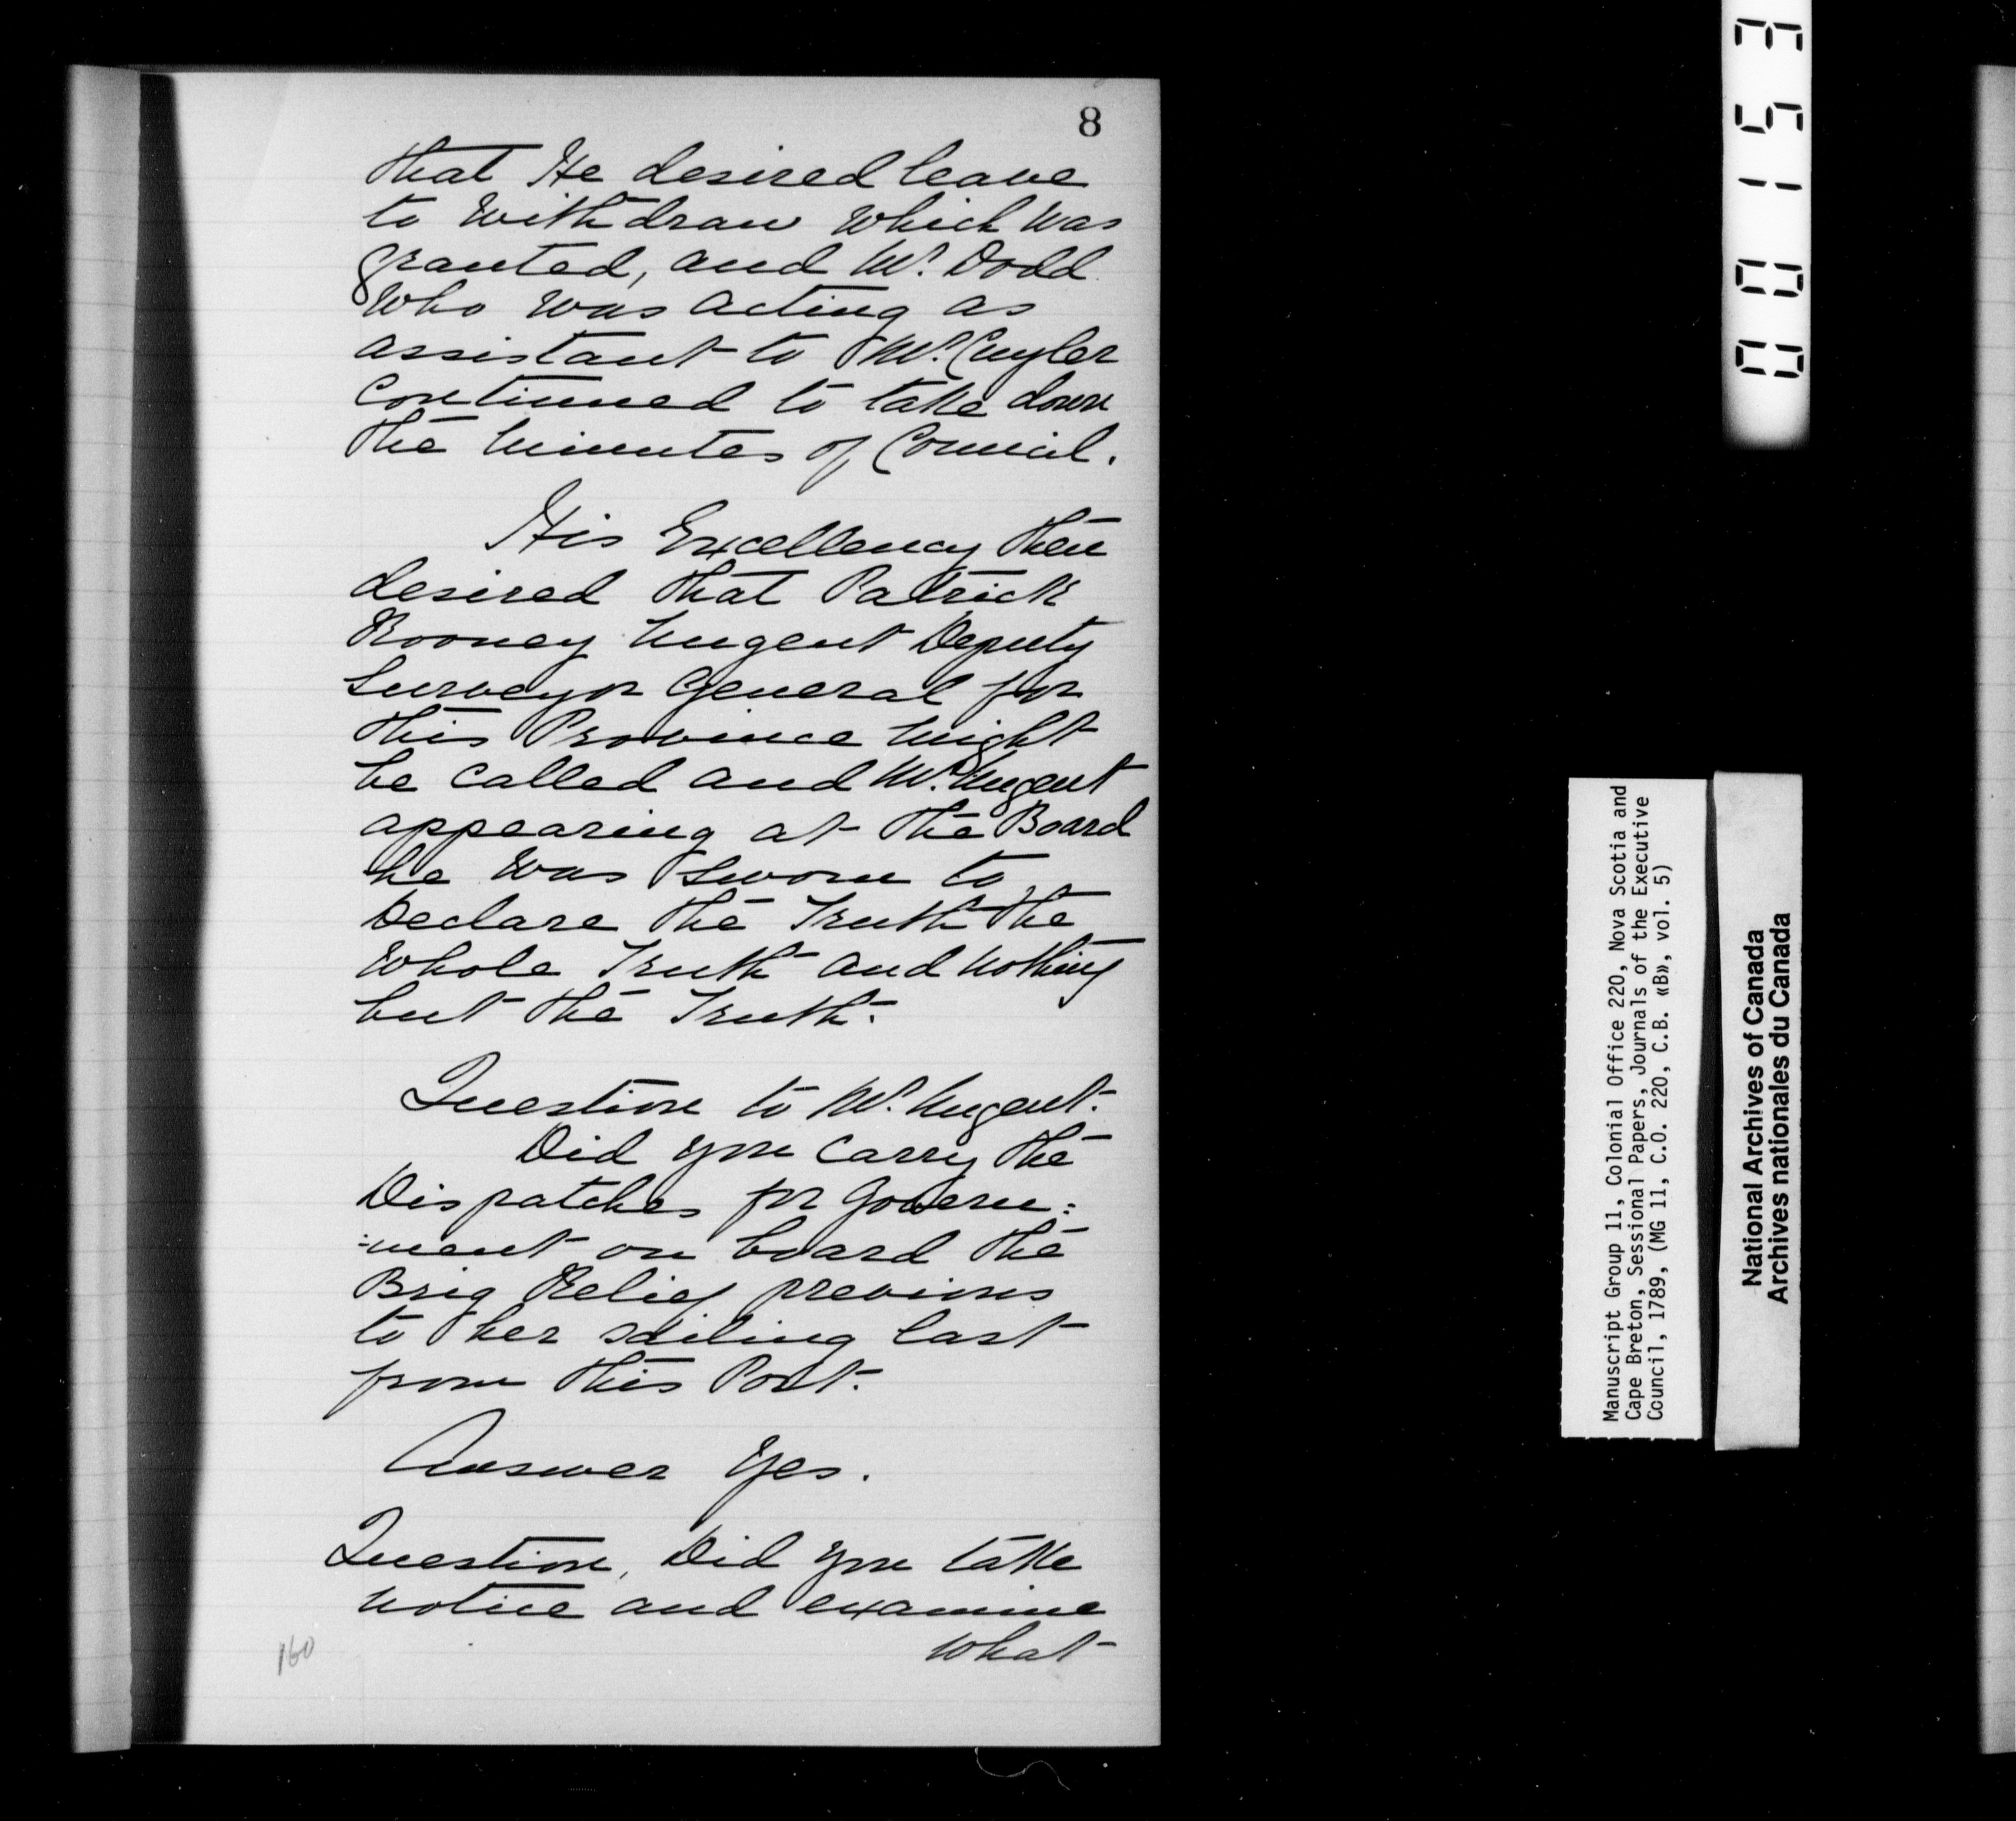 8
that He desired leave
to Withdraw which was
granted, and Mr. Dodd
who was acting as
assistant to Mr. Cuyler
Continued to take down
the Minutes of Council.
His Excellency then
desired that Patrick
Rooney Nugent Deputy
Surveyor General for
this Province might
be called and Mr. Nugent
appearing at the Board
he was Sworn to
Declare the Truth the
Whole Truth and nothing
but the Truth.
Question to Mr. Nugent.
Did you carry the
Dispatches for Govern:
:ment on board the
Brig Relief previous
to her sailing last
from this Port.
Answer Yes.
Question, Did you take
notice and examine
what
160
00153
Manuscript Group 11, Colonial Office 220, Nova Scotia and
Cape Breton, Sessional Papers, Journals of the Executive
Council, 1789, (MG 11, C.O. 220, C.B. «B», vol. 5)
National Archives of Canada
Archives nationales du Canada